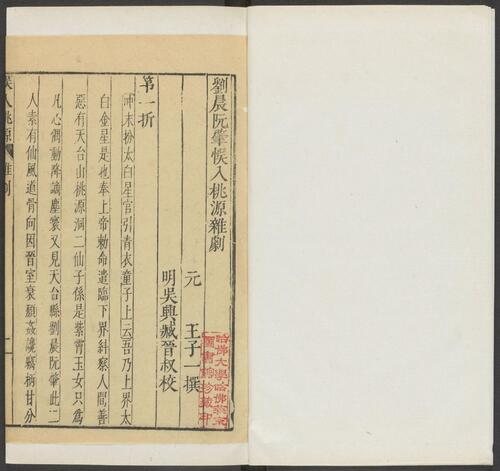 劉晨阮肇悞入桃源雜劇
元　王子一撰
明吳興臧晉叔校
第一折
沖末扮太白星官引青衣童子上云吾乃上界太
白金星是也奉上帝勅命遣臨下界糾察人間善
惡有天台山桃源洞二仙子係是紫霄玉女只為
凡心偶動降謫塵寰又見天台縣劉晨阮肇此二
人素有仙風道骨向因晉室衰頹姦讒竊柄甘分
悞入桃源
雜劇
一
哈佛大學哈佛燕京
圖書館珍藏印